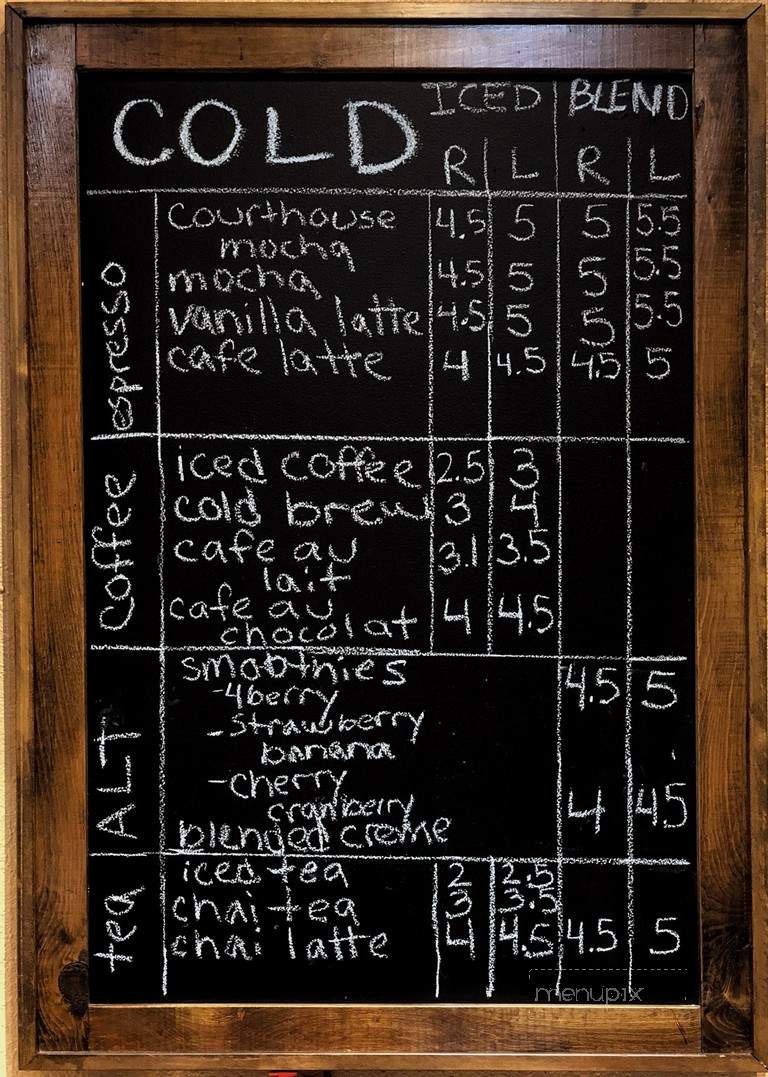 COLD ICED BLEND
R L R L
espresso
courthouse 4.5 5 5 5.5
mocha
mocha 4.5 5 5 5.5
vanilla latte 4.5 5 5 5.5
cafe latte 4 4.5 4.5 5
Coffee
iced coffee 2.5 3
cold brew 3 4
cafe au 3.1 3.5
lait
cafe au 4 4.5
chocolat
ALT
smoothies 4.5 5
-4berry
-strawberry
banana
-cherry
cranberry
blended creme 4 4.5
tea
iced tea 2 2.5
chai tea 3 3.5
chai latte 4 4.5 4.5 5
menupix